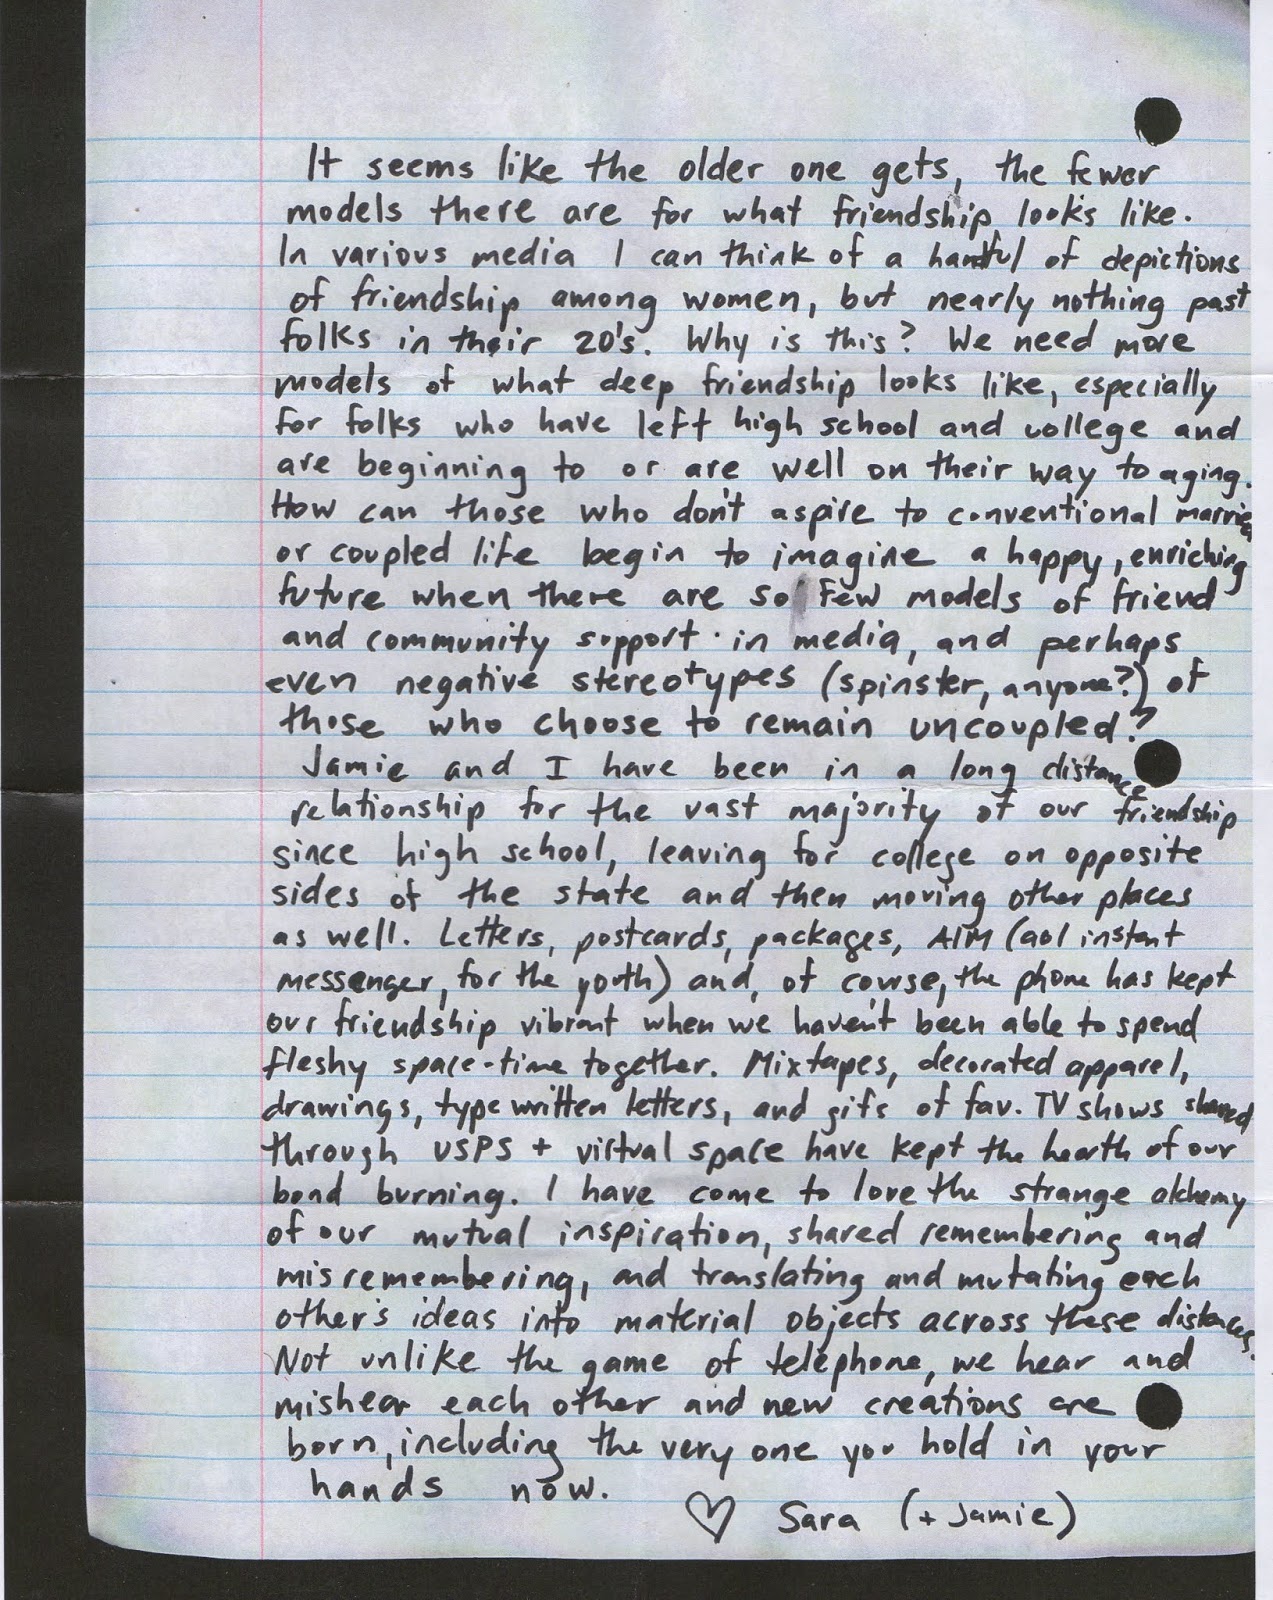 It seems like the older one gets, the fewer
models there are for what friendship looks like.
In various media I can think of a handful of depictions
of friendship among women, but nearly nothing past
folks in their 20's. Why is this? We need more
models of what deep friendship looks like, especially
for folks who have left high school and college and
are beginning to or are well on their way to aging.
How can those who don't aspire to conventional married
or coupled life begin to imagine a happy, enriching
future when there are so few models of friend
and community support in media, and perhaps
even negative stereotypes (spinster, anyone?) of
those who choose to remain uncoupled?
Jamie and I have been in a long distance
relationship for the vast majority of our friendship
since high school, leaving for college on opposite
sides of the state and then moving other places
as well. Letters, postcards, packages, AIM (aol instant
messenger, for the youth) and, of course, the phone has kept
our friendship vibrant when we haven't been able to spend
fleshy space-time together. Mixtapes, decorated apparel,
drawings, type written letters, and gifs of fav. TV shows shared
through USPS + virtual space have kept the hearth of our
bond burning. I have come to love the strange alchemy
of our mutual inspiration, shared remembering and
misremembering, and translating and mutating each
other's ideas into material objects across these distances.
Not unlike the game of telephone, we hear and
mishear each other and new creations are
born, including the very one you hold in your
hands now.
♡ Sara (+ Jamie)